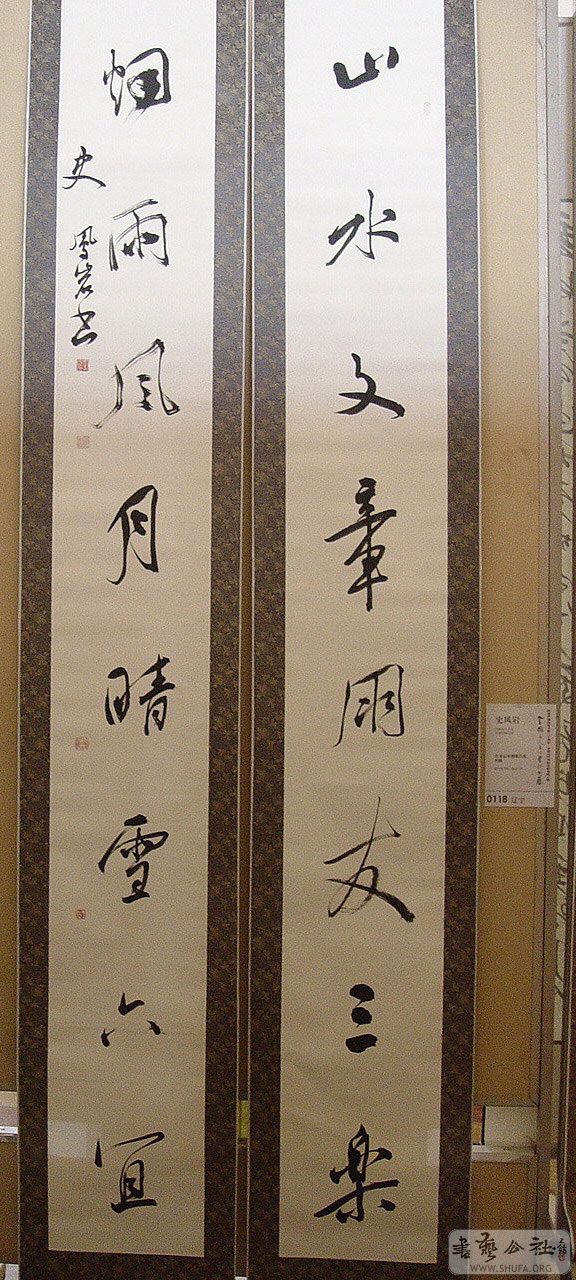 山水文章朋友三樂
烟雨風月晴雪六宜
史鳳岩书
史凤岩
0118 辽宁
書藝公社
WWW.SHUFA.ORG